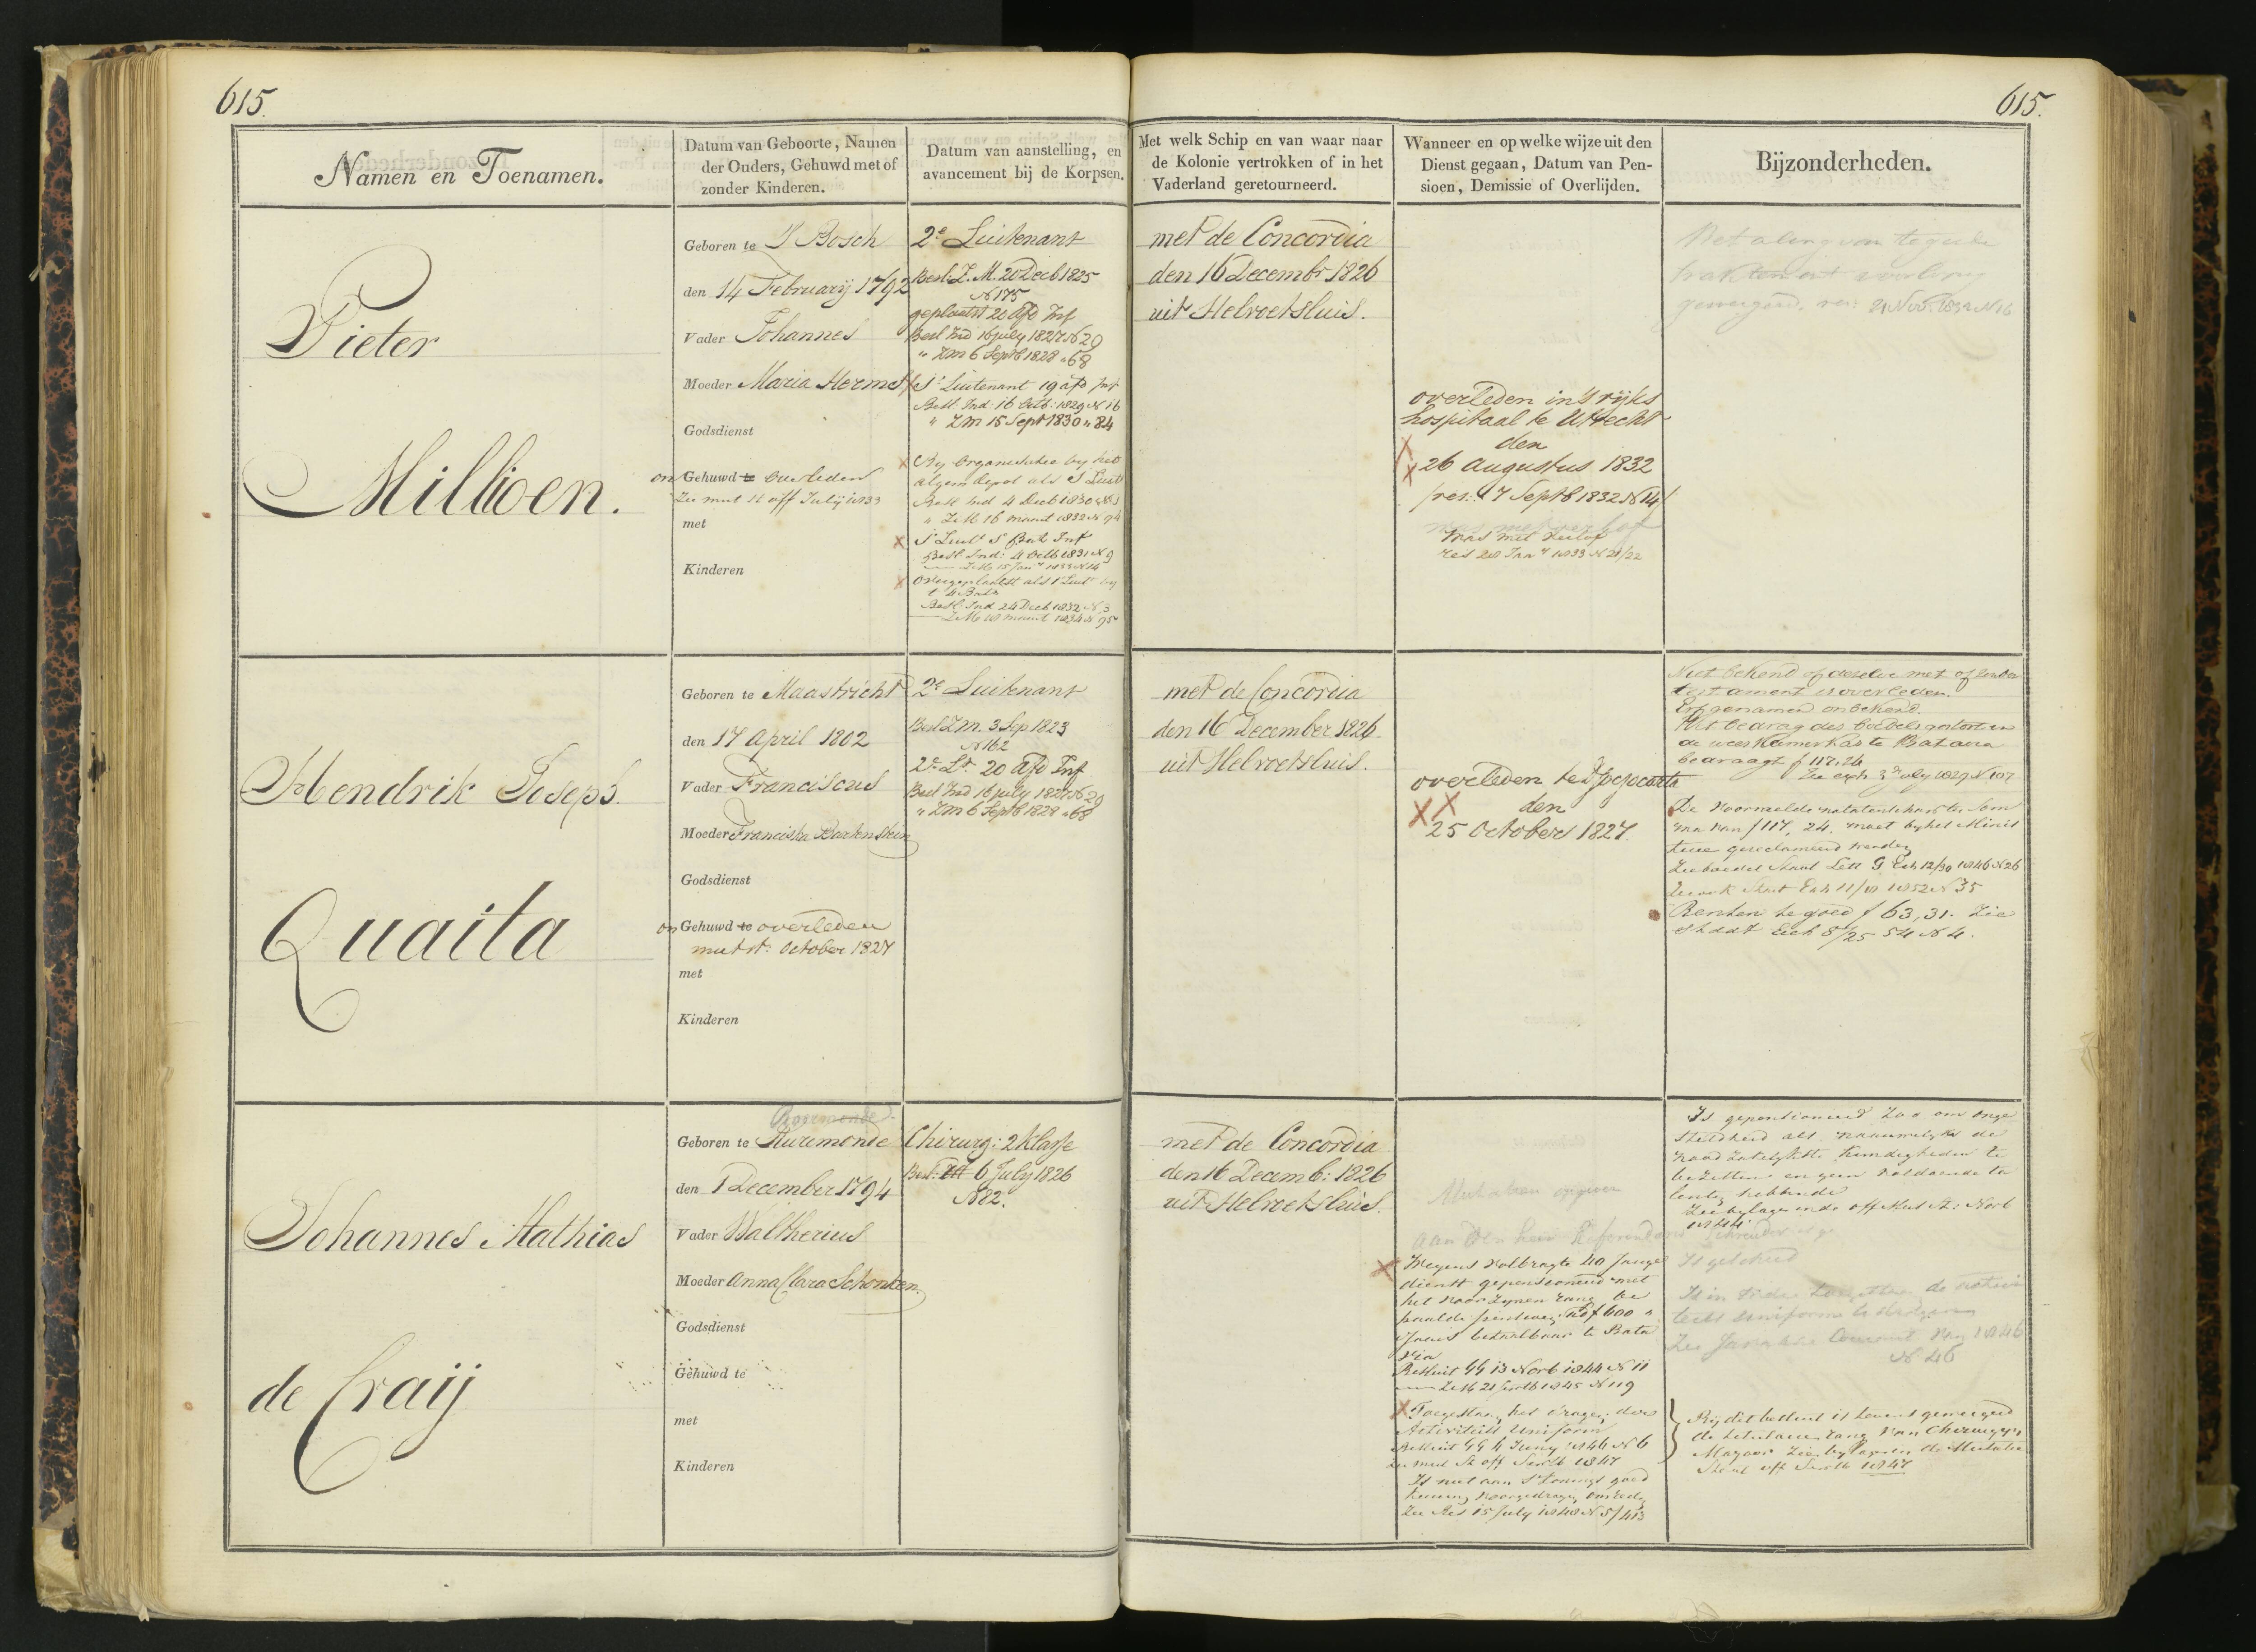 615.
615.
Namen en Toenamen.
Datum van Geboorte, Namen
der Ouders, Gehuwd met of
zonder Kinderen.
Datum van aanstelling, en
avancement bij de Korpsen.
Met welk Schip en van waar naar
de Kolonie vertrokken of in het
Vaderland geretourneerd.
Wanneer en op welke wijze uit den
Dienst gegaan, Datum van Pen-
sioen, Demissie of Overlijden.
Bijzonderheden.
Pieter
Millioen.
Geboren te 's Bosch
den 14 February 1792
Vader Johannes
Moeder Maria Hermes
Godsdienst
on Gehuwd te overleden
Zie mut st off July 1833
met
Kinderen
2e Luitenant
Besl. Z. M. 20 Decb 1825
N 175
geplaatst 20 Afd Inf
Besl Ind 16 July 1827 N 29
" ZM 6 Septb 1828 " 68
1e Luitenant 19 afd Inf
Besl. Ind: 16 Octb: 1829 N 16
" ZM 15 Sept 1830 " 84
X By Organisatie by het
algem depot als 1 Luit
Besl Ind 4 Decb 1830
" ZM 16 maart 1832 N 94
X 1 Luit Bat Inf
Besl. Ind: 4 Octb 1831 N 9
ZM 15 Jan 1833 N 14
X Overgeplaatst als 1 Luit by
t 4 Bat
Besl. Ind 24 Decb 1832 N 3
ZM maart 1834 N 95
met de Concordia
den 16 Decembr 1826
uit Helvoetsluis.
overleden in 's rijks
hospitaal te Utrecht
den
26 augustus 1832
res: 17 Septb 1832 N 14
was met verlof
was met verlof
res 28 Jan 1833 N 21/22
Betaling van tegoede
traktement voorlopig
geweigerd. res: 21 Nov. 1832 N 16
Hendrik Joseph
Quaita
Geboren te Maastricht
den 17 April 1802
Vader Franciscus
Moeder Franciska Bartenstein
Godsdienst
on Gehuwd te overleden
mut st: October 1827
met
Kinderen
2e Luitenant
Besl ZM. 3 Sep 1823
N 162
2e Lt. 20 Afd Inf
Besl Ind 16 July 1827 N 29
" ZM 6 Septb 1828 " 68
met de Concordia
den 16 December 1826
uit Helvoetsluis.
overleden te Djocjocarta
X X den
25 October 1827.
Niet bekend of dezelve met of zonder
testament is overleden.
Erfgenamen onbekend.
Het bedrag des boedels gestort in
de weeskamer kas te Batavia
bedraagt f 117,24
Zie exh 3 July 1829 N 107
De voormelde nalatenschap ter som
ma van f 117, 24. moet by het Minis
terie gereclameerd worden
Zie boedel Staat Lett G Exh 12/30 1846 N 26
Zie ook Staat Exh 11/18 1852 N 35
Renten te goed f 63,31. Zie
staat Exh 8/25 54 N 4.
Johannes Mathias
de Craij
Roermonde
Geboren te Ruremonde
den 1 December 1794
Vader Waltherius
Moeder Anna Clara Schonken
Godsdienst
Gehuwd te
met
Kinderen
Chirurg: 2 Klasse
Besl. 6 July 1826
N 82.
met de Concordia
den 16 Decemb: 1826
uit Helvoetsluis.
aan den heer Referendaris Schreuder
X Wegens volbragte 40 Jarige
dienst gepensioneerd met
het voor zynen rang be
paalde pensioen ad f 600
's Jaars betaalbaar te Bata
via
Besluit GG 13 Novb 1844 N 11
ZM 21 1845 N 119
X Toegestaan het dragen der
Activiteits Uniform
Besluit GG 4 Juny 1846 N 6
Zie mut St off 1847
Is niet aan 's Konings goed
keuring voorgedragen om reden
Zie Res 15 July 1848 N 5/413
Is gepensioneerd zoo om onge
steldheid als naauwelyks de
noodzakelykste kundigheden te
bezitten en geen voldoende ta
lenten hebbende
Zie bylagen in de off Mut St: Novb
1844
Is gehuwd
Zie Javasche Courant 1846
N 46
By dit besluit is tevens geweigerd
de titulaire rang van Chirurgyn
Majoor Zie bylagen in de Mutatie
Staat off 1847